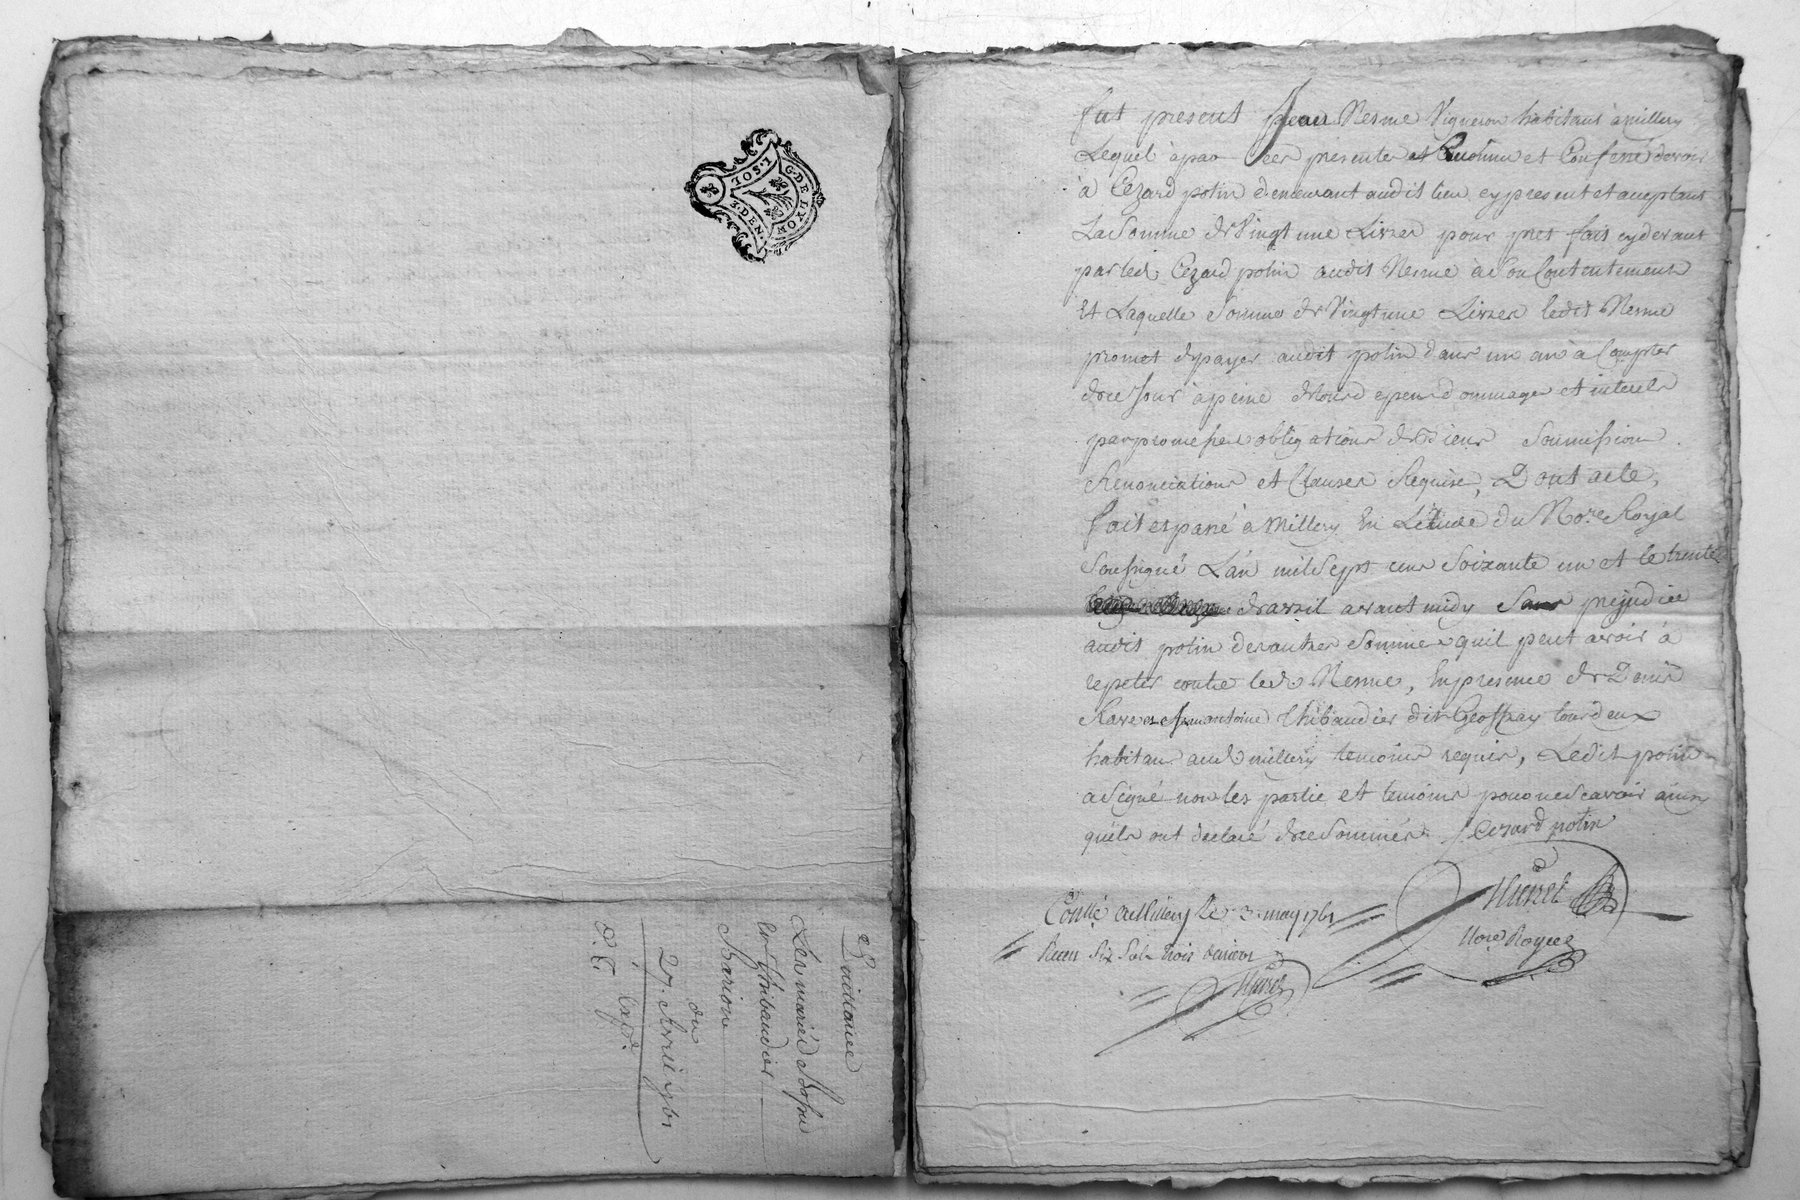 G. DE LYON
I. SOL
3. DEN.
Quittance
Les mariés
et Thibaudier
du
27. Avril 1761
fut present Jean Nesme Vigneron habitant à millery
Lequel à par ces presentes et Confessé devoir
à Cezard potin demeurant audit lieu cy present et aceptant
La Somme de Vingt une Livres pour pret fait cy devant
par led. Cezard potin audit Nesme à son Contentement
Et Laquelle Somme de Vingt une Livres ledit Nesme
promet de payer audit potin dans un an à Compter
de ce Jour à peine de tous depens dommages et interets
par promesses obligations de biens Soumissions
Renonciations et Clauses Requise, Dont acte,
fait et passé à Millery En L'étude du No.re Royal
Soussigné L'an mil Sept cens Soixante un et le trente
d'avril avant midy Sans prejudice
audit potin des autres Sommes quil peut avoir à
repeter contre led. Nesme, En presence de Denis
Rave et Jean antoine Thibaudier dit Geoffray tous deux
habitans aud. millery temoins requis, Ledit potin
a Signé non les partie et temoins pour ne Scavoir ainsy
quils ont declaré de ce Sommés Cezard potin
No.re Royal
Con.llé à Millery Le 3. may 1761
Receu Six Sols trois deniers